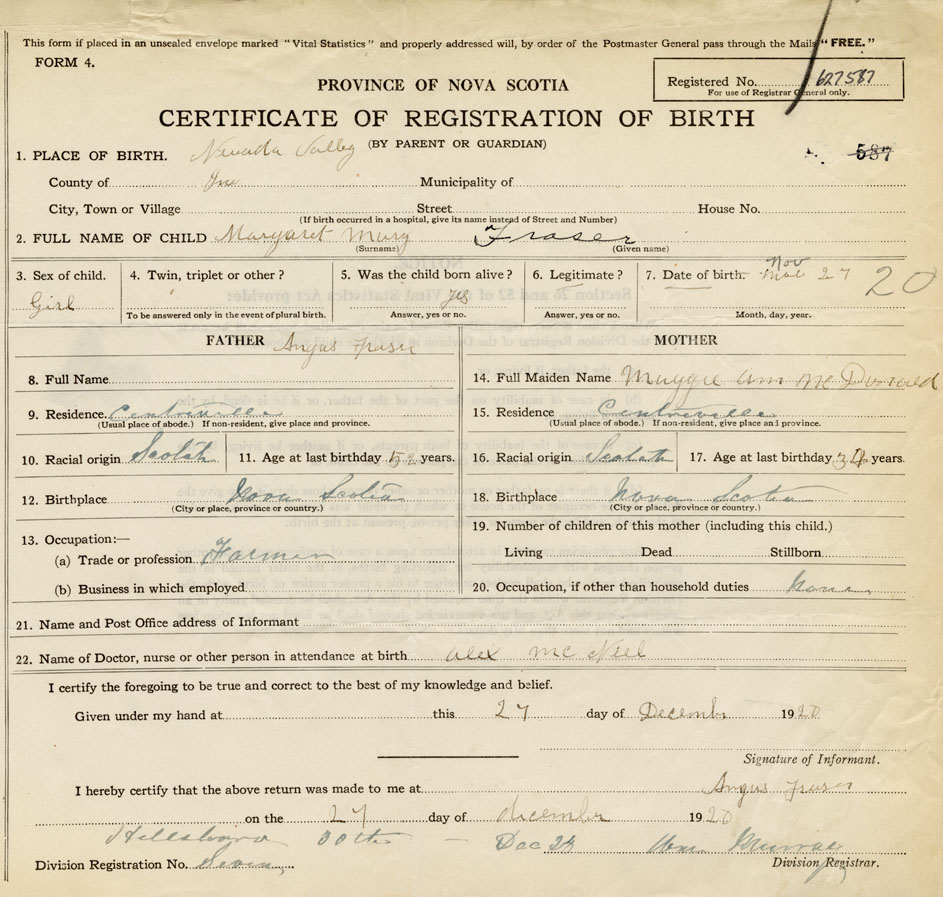 This form if placed in an unsealed envelope marked "Vital Statistics" and properly addressed will, by order of the Postmaster General pass through the Mails "FREE."
FORM 4.
PROVINCE OF NOVA SCOTIA
Registered No. 627587
For use of Registrar General only.
CERTIFICATE OF REGISTRATION OF BIRTH
(BY PARENT OR GUARDIAN)
587
1. PLACE OF BIRTH. Nevada Valley
County of Inv Municipality of
City, Town or Village Street House No.
(If birth occurred in a hospital, give its name instead of Street and Number)
2. FULL NAME OF CHILD Margaret Mary Fraser
(Surname) (Given name)
3. Sex of child. 4. Twin, triplet or other? 5. Was the child born alive? 6. Legitimate? 7. Date of birth. Nov 27 20
Girl yes
To be answered only in the event of plural birth. Answer, yes or no. Answer, yes or no. Month, day, year.
FATHER Angus Fraser MOTHER
8. Full Name 14. Full Maiden Name Maggie Ann McDonald
9. Residence. Centreville 15. Residence Centreville
(Usual place of abode.) If non-resident, give place and province. (Usual place of abode.) If non-resident, give place and province.
10. Racial origin Scotch 11. Age at last birthday 52 years. 16. Racial origin Scotch 17. Age at last birthday years.
12. Birthplace Nova Scotia 18. Birthplace Nova Scotia
(City or place, province or country.) (City or place, province or country.)
13. Occupation:— 19. Number of children of this mother (including this child.)
(a) Trade or profession Farmer Living Dead Stillborn
(b) Business in which employed 20. Occupation, if other than household duties None
21. Name and Post Office address of Informant
22. Name of Doctor, nurse or other person in attendance at birth Alex McNeil
I certify the foregoing to be true and correct to the best of my knowledge and belief.
Given under my hand at this 27 day of December 1920
Signature of Informant.
I hereby certify that the above return was made to me at Angus Fraser
on the 27 day of december 1920
Hillsboro 30th – Dec Wm Murray
Division Registration No. Seven Division Registrar.